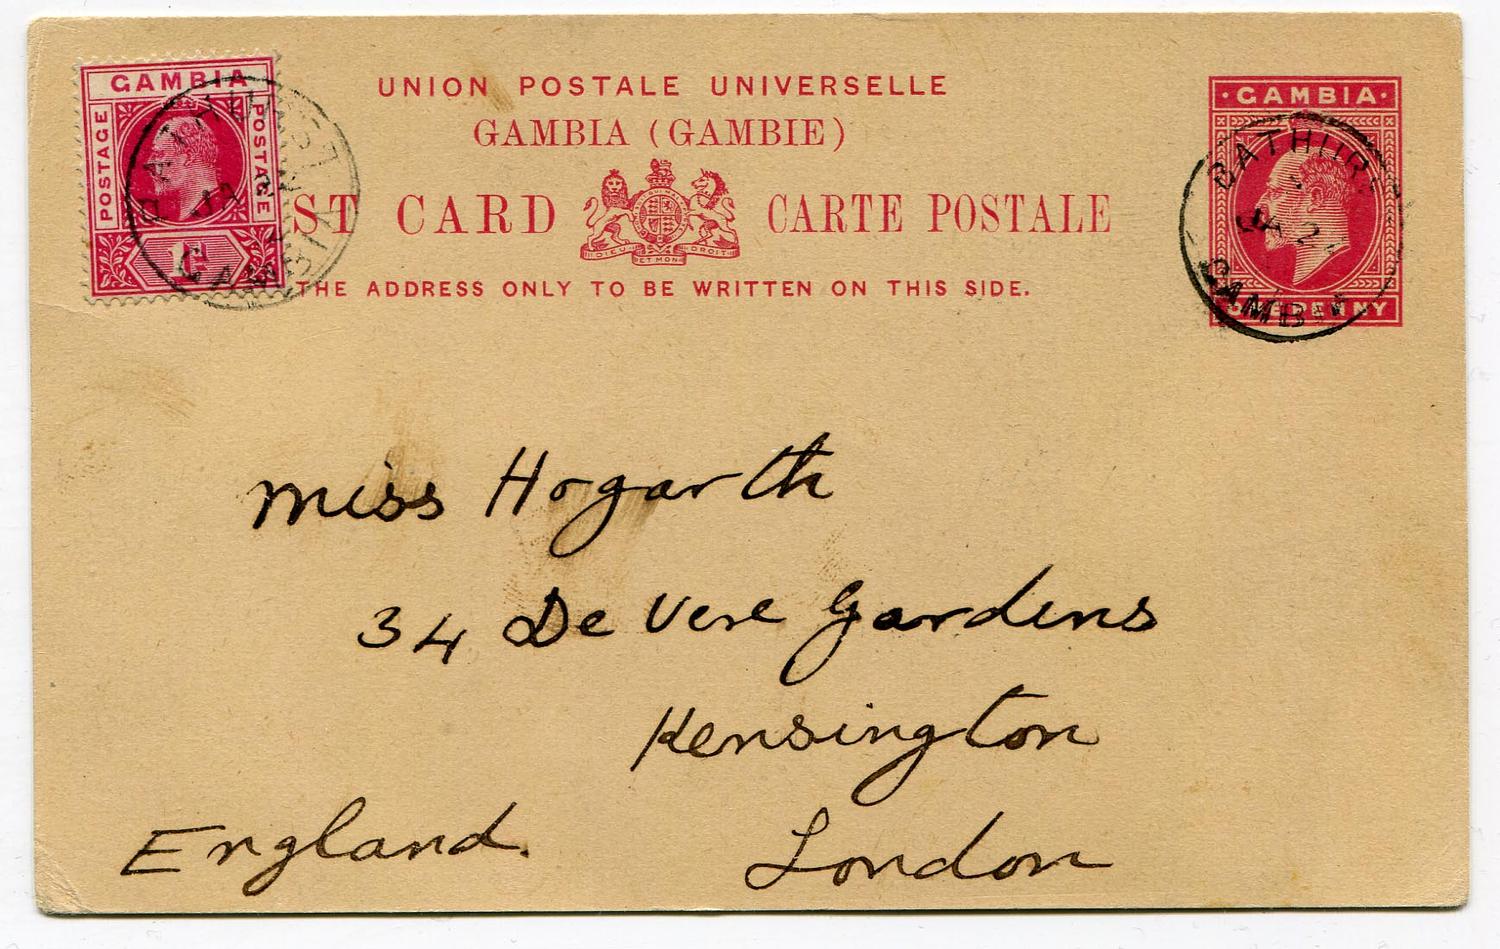 GAMBIA
POSTAGE
POSTAGE
1D
BATHURST
JA
GAMBIA
UNION POSTALE UNIVERSELLE
GAMBIA (GAMBIE)
ST CARD CARTE POSTALE
DIEU ET MON DROIT
THE ADDRESS ONLY TO BE WRITTEN ON THIS SIDE.
GAMBIA
ONE PENNY
BATHURS
JA 2
GAMBIA
Miss Hogarth
34 De Vere Gardens
Kensington
London
England.